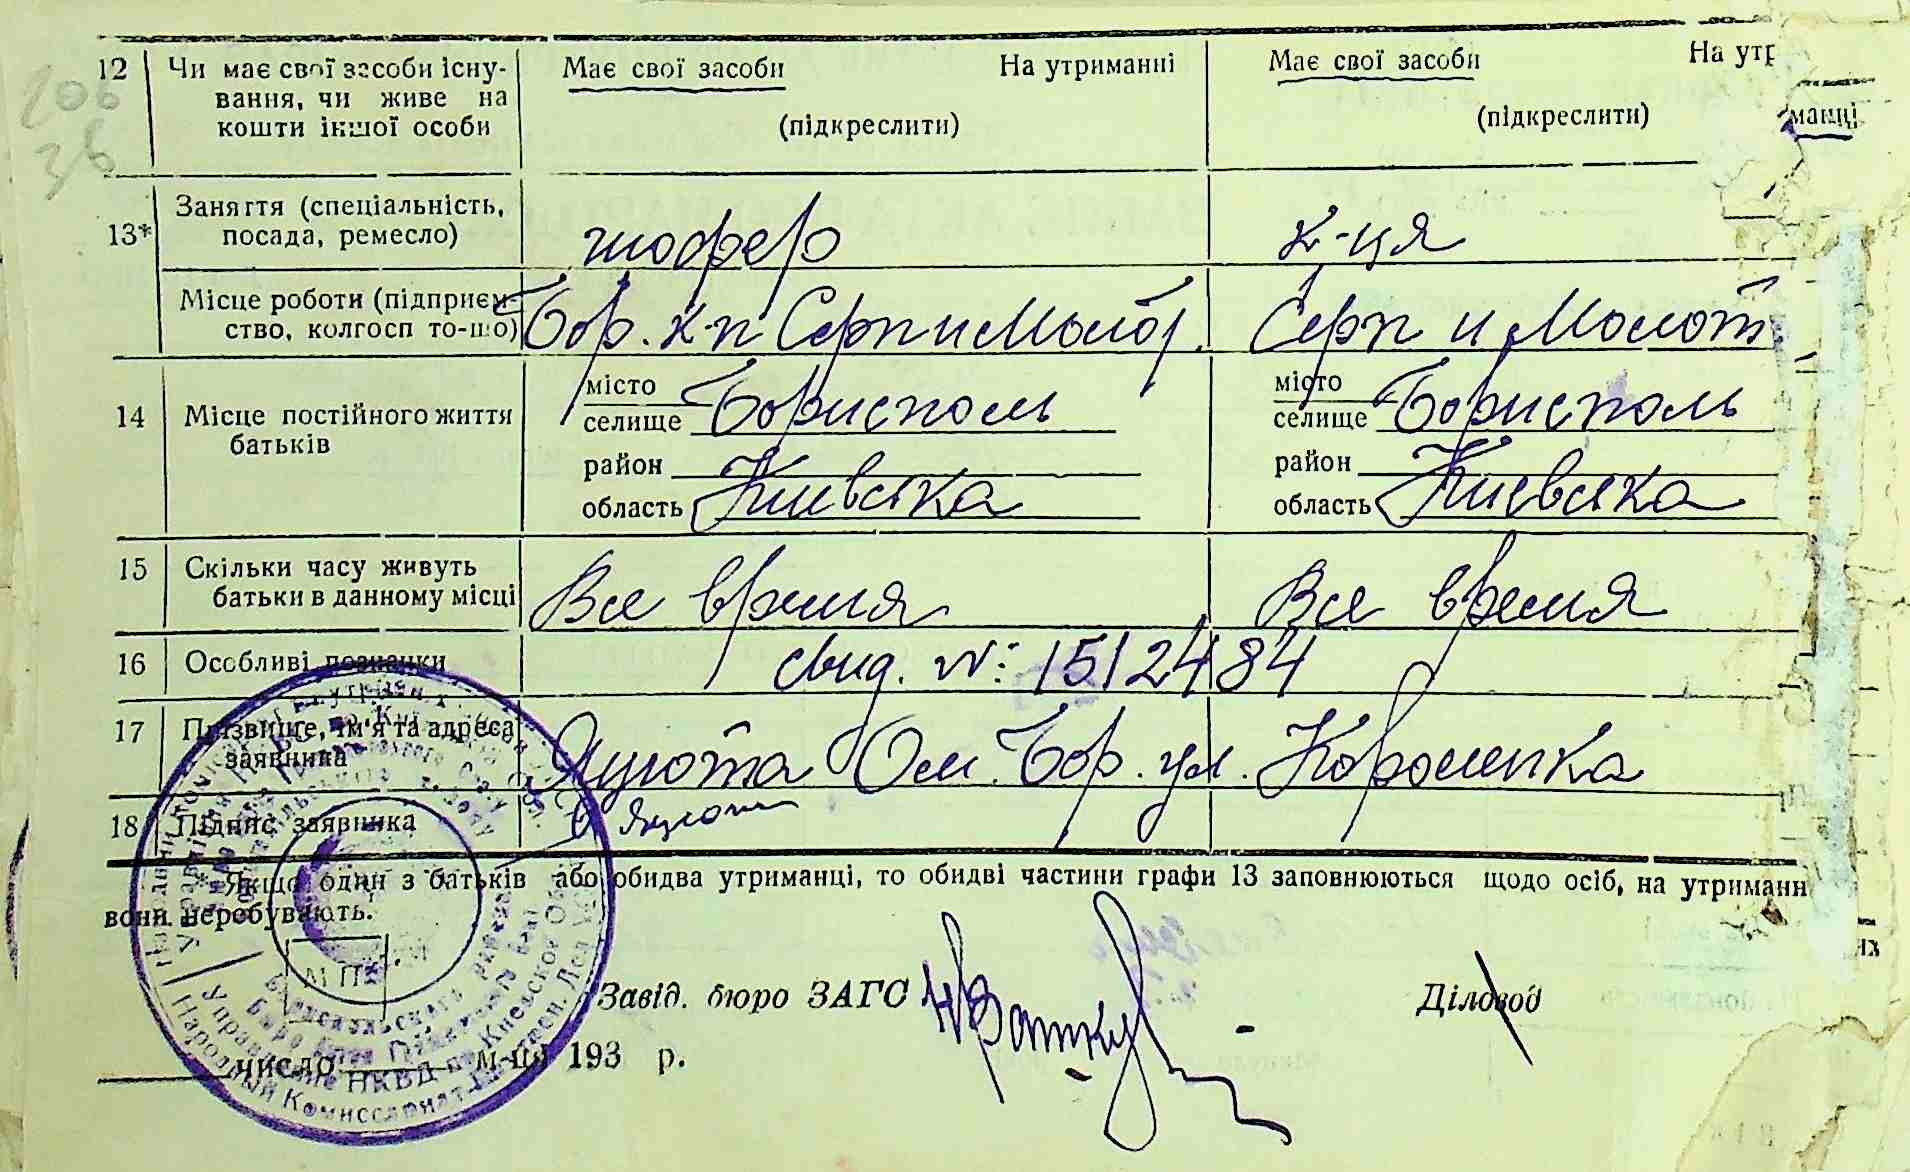 206
36
12 Чи має свої засоби існу- Має свої засоби На утриманні Має свої засоби На утр
вання, чи живе на манці
кошти іншої особи (підкреслити) (підкреслити)
13* Заняття (спеціальність, шофер к-ця
посада, ремесло)
Місце роботи (підприєм- Бор. к-п Серп и Молот Серп и Молот
ство, колгосп то-що)
14 Місце постійного життя місто місто
батьків селище Борисполь селище Борисполь
район район
область Киевська область Киевська
15 Скільки часу живуть Все время Все время
батьки в данному місці
16 Особливі познанки свид. №: 1512484
17 Прізвище, ім'я та адреса Яцюта Ом. Бор. ул. Короленка
заявника
18 Підпис заявника
* Якщо один з батьків або обидва утриманці, то обидві частини графи 13 заповнюються щодо осіб, на утриманн
вони перебувають.
М П
Завід. бюро ЗАГС Діловод
число м-ця 193 р.
Управление НКВД по Киевской
Народный Комиссариат